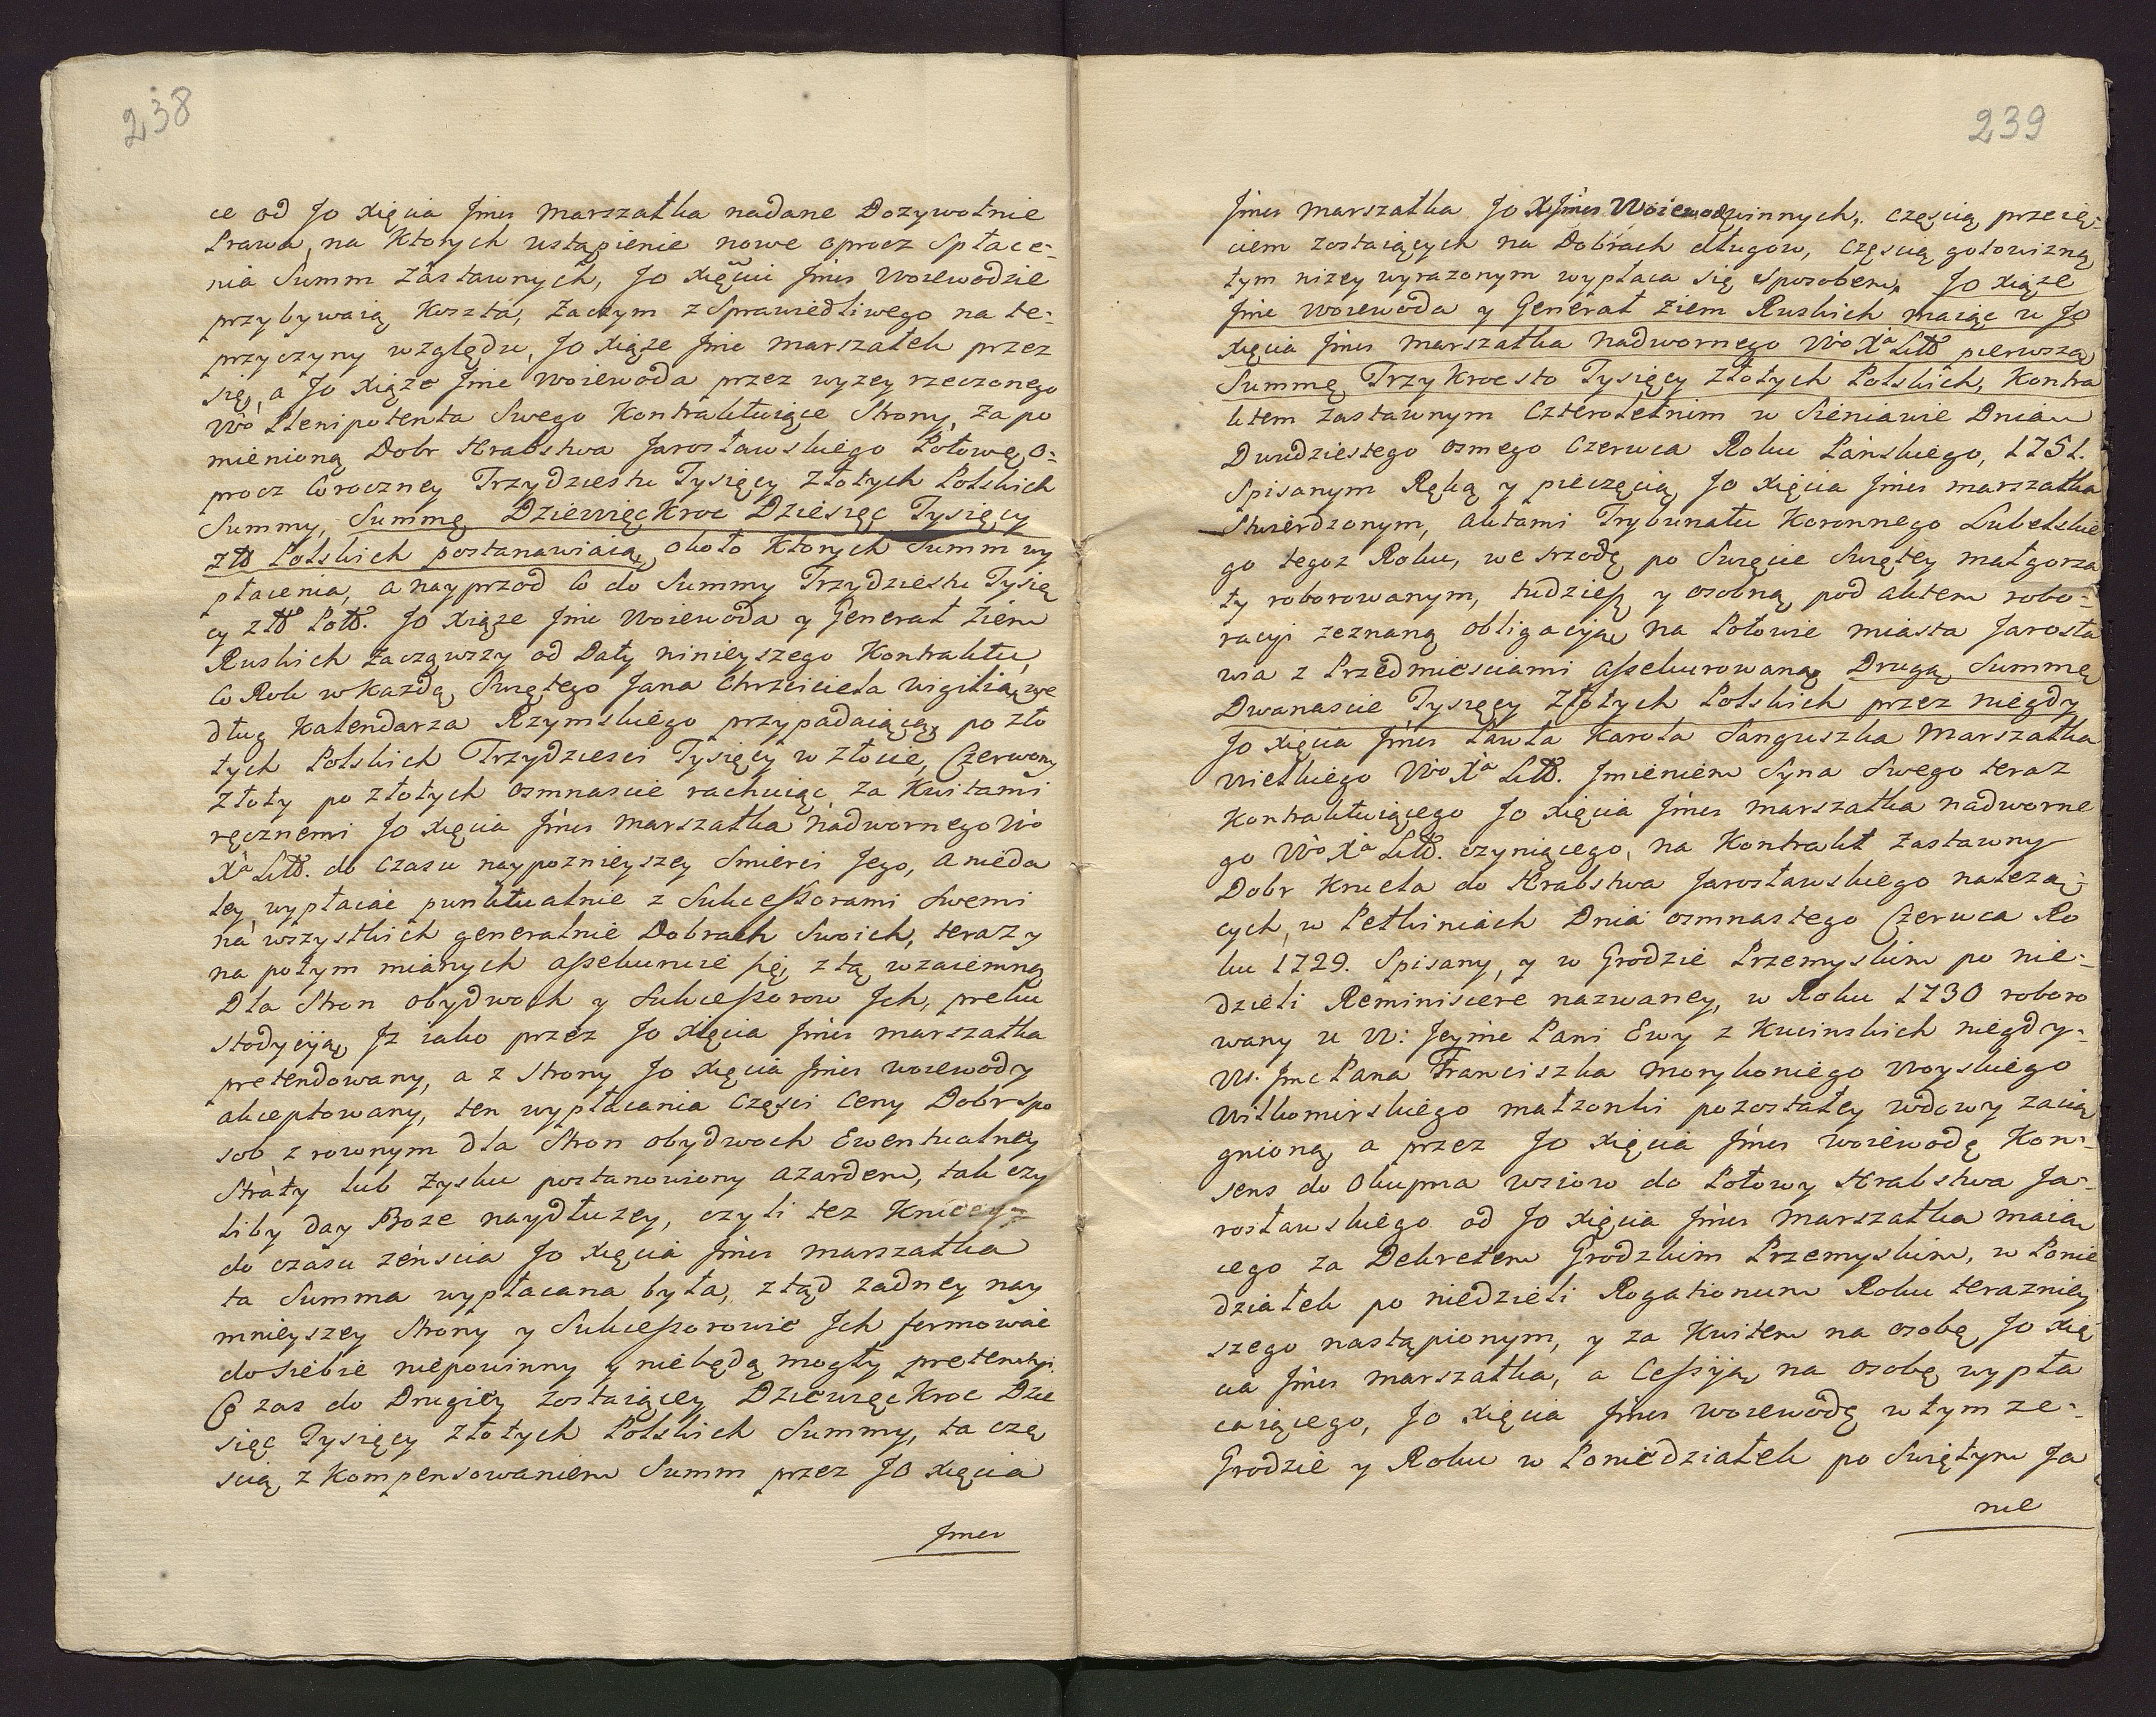 238
ce od Jo Xięcia Jmci Marszałka nadane Dozywotnie
Prawa, na Ktorych ustąpienie nowe oprocz Spłace=
nia Summ Zastawnych, Jo Xięciu Jmci Woiewodzie
przybywaią Koszta, Zaczym z Sprawiedliwego na te=
przyczyny względu, Jo Xiąże Jmc Marszałek przez
się, a Jo Xiąże Jmc Woiewoda przez wyzey rzeczonego
Wo Plenipotenta Swego Kontraktuiące Strony, za po
mienioną Dobr Hrabstwa Jarosławskiego Połowę, o=
procz Coroczney Trzydziestu Tysięcy Złotych Polskich
Summy, Summę Dziewięckroc Dziesięc Tysięcy
złł Polskich postanawiaią, około Ktorych Summ wy
płacenia, a nayprzod Co do Summy Trzydziestu Tysię
cy złł Polł. Jo Xiąże Jmc Woiewoda y Generał Ziem
Ruskich Zacząwszy od Daty ninieyszego Kontraktu,
Co Rok w Kazdą Swiętego Jana Chrzciciela Wigilią, we
dług Kalendarza Rzymskiego przypadaiącą, po zło
tych Polskich Trzydziesci Tysięcy w złocie, Czerwony
złoty po złotych osmnascie rachuiąc za Kwitami
ręcznemi Jo Xięcia Jmci Marszałka Nadwornego Wo
Xa Litt. do Czasu naypoznieyszey Smierci Jego, a nieda
ley, wypłacac punktualnie z Sukcessorami Swemi
na wszystkich generalnie Dobrach Swoich, teraz y
na potym mianych assekuruie się, z tą wzaiemną
Dla Stron obydwoch y Sukcessorow Jch, preku
stodycyją, Jz iako przez Jo Xięcia Jmci Marszałka
pretendowany, a z Strony Jo Xięcia Jmci Woiewody
akceptowany, ten wypłacania Częsci Ceny Dobr spo
sob z rownym dla Stron obydwoch Ewentualney
Straty lub Zysku postanowiony azardem, tak czy
liby day Boze naydłuzey, czyli tez
do czasu zeńscia Jo Xięcia Jmci Marszałka
ta Summa wypłacana była, ztąd zadney nay
mnieyszey Strony y Sukcessorowie Jch formować
do Siebie niepowinny y niebędą mogły pretensyi.
Co zas do Drugiey zostaiącey Dziewięc Kroc Dzie
sięc Tysięcy złotych Polskich Summy, ta czę
scią z Kompensowaniem Summ przez Jo Xięcia
Jmci
239
Jmci Marszałka Jo XJmci Woiewodzie winnych, częscią przeię=
ciem zostaiących na Dobrach długow, częscią gotowizną
tym nizey wyrazonym wypłaca się sposobem. Jo Xiąże
Jmc Woiewoda y Generał Ziem Ruskich maiąc u Jo
Xięcia Jmci Marszałka Nadwornego Wo Xa Litt pierwszą
Summę Trzykroc sto Tysięcy złotych Polskich, Kontra
ktem Zastawnym Czteroletnim w Sieniawie Dnia
Dwudziestego osmego Czerwca Roku Pańskiego, 1751.
Spisanym Ręką y pieczęcią Jo Xięcia Jmci Marszałka
Stwierdzonym, aktami Trybunału Koronnego Lubelskie
go tegoz Roku, we Srzodę po Swięcie Swiętey Małgorza
ty roborowanym, tudziesz y osobną pod aktem robo=
racyi zeznaną obligacyją na Połowie miasta Jarosła
wia z Przedmiesciami assekurowaną. Drugą Summę
Dwanascie Tysięcy Złotych Polskich przez niegdy
Jo Xięcia Jmci Pawła Karola Sanguszka Marszałka
Wielkiego Wo Xa Litt. Jmieniem Syna Swego teraz
Kontraktuiącego Jo Xięcia Jmci Marszałka Nadworne
go Wo Xa Litt. czyniącego, na Kontrakt Zastawny
Dobr Krucla do Hrabstwa Jarosławskiego nalezą=
cych, w Pełkiniach Dnia osmnastego Czerwca Ro
ku 1729. Spisany, y w Grodzie Przemyskim po nie=
dzieli Reminiscere nazwaney, w Roku 1730 roboro
wany u W: Jeymc Pani Ewy z Kucinskich niegdy=
W. Jmc Pana Franciszka Morykoniego Woyskiego
Wiłkomirskiego małzonki pozostałey wdowy zacią
gnioną, a przez Jo Xięcia Jmci Woiewodę Kon=
sens do Okupna wziow do Połowy Hrabstwa Ja=
rosławskiego od Jo Xięcia Jmci Marszałka maią
cego za Dekretem Grodzkim Przemyskim, w Ponie
działek po niedzieli Rogationum Roku terazniey
szego nastąpionym, y za Kwitem na osobę Jo Xię
cia Jmci Marszałka, a Cessyją na osobę wypła
caiącego, Jo Xięcia Jmci Woiewodę w tym ze=
Grodzie y Roku w Poniedziałek po Swiętym Ja
nie